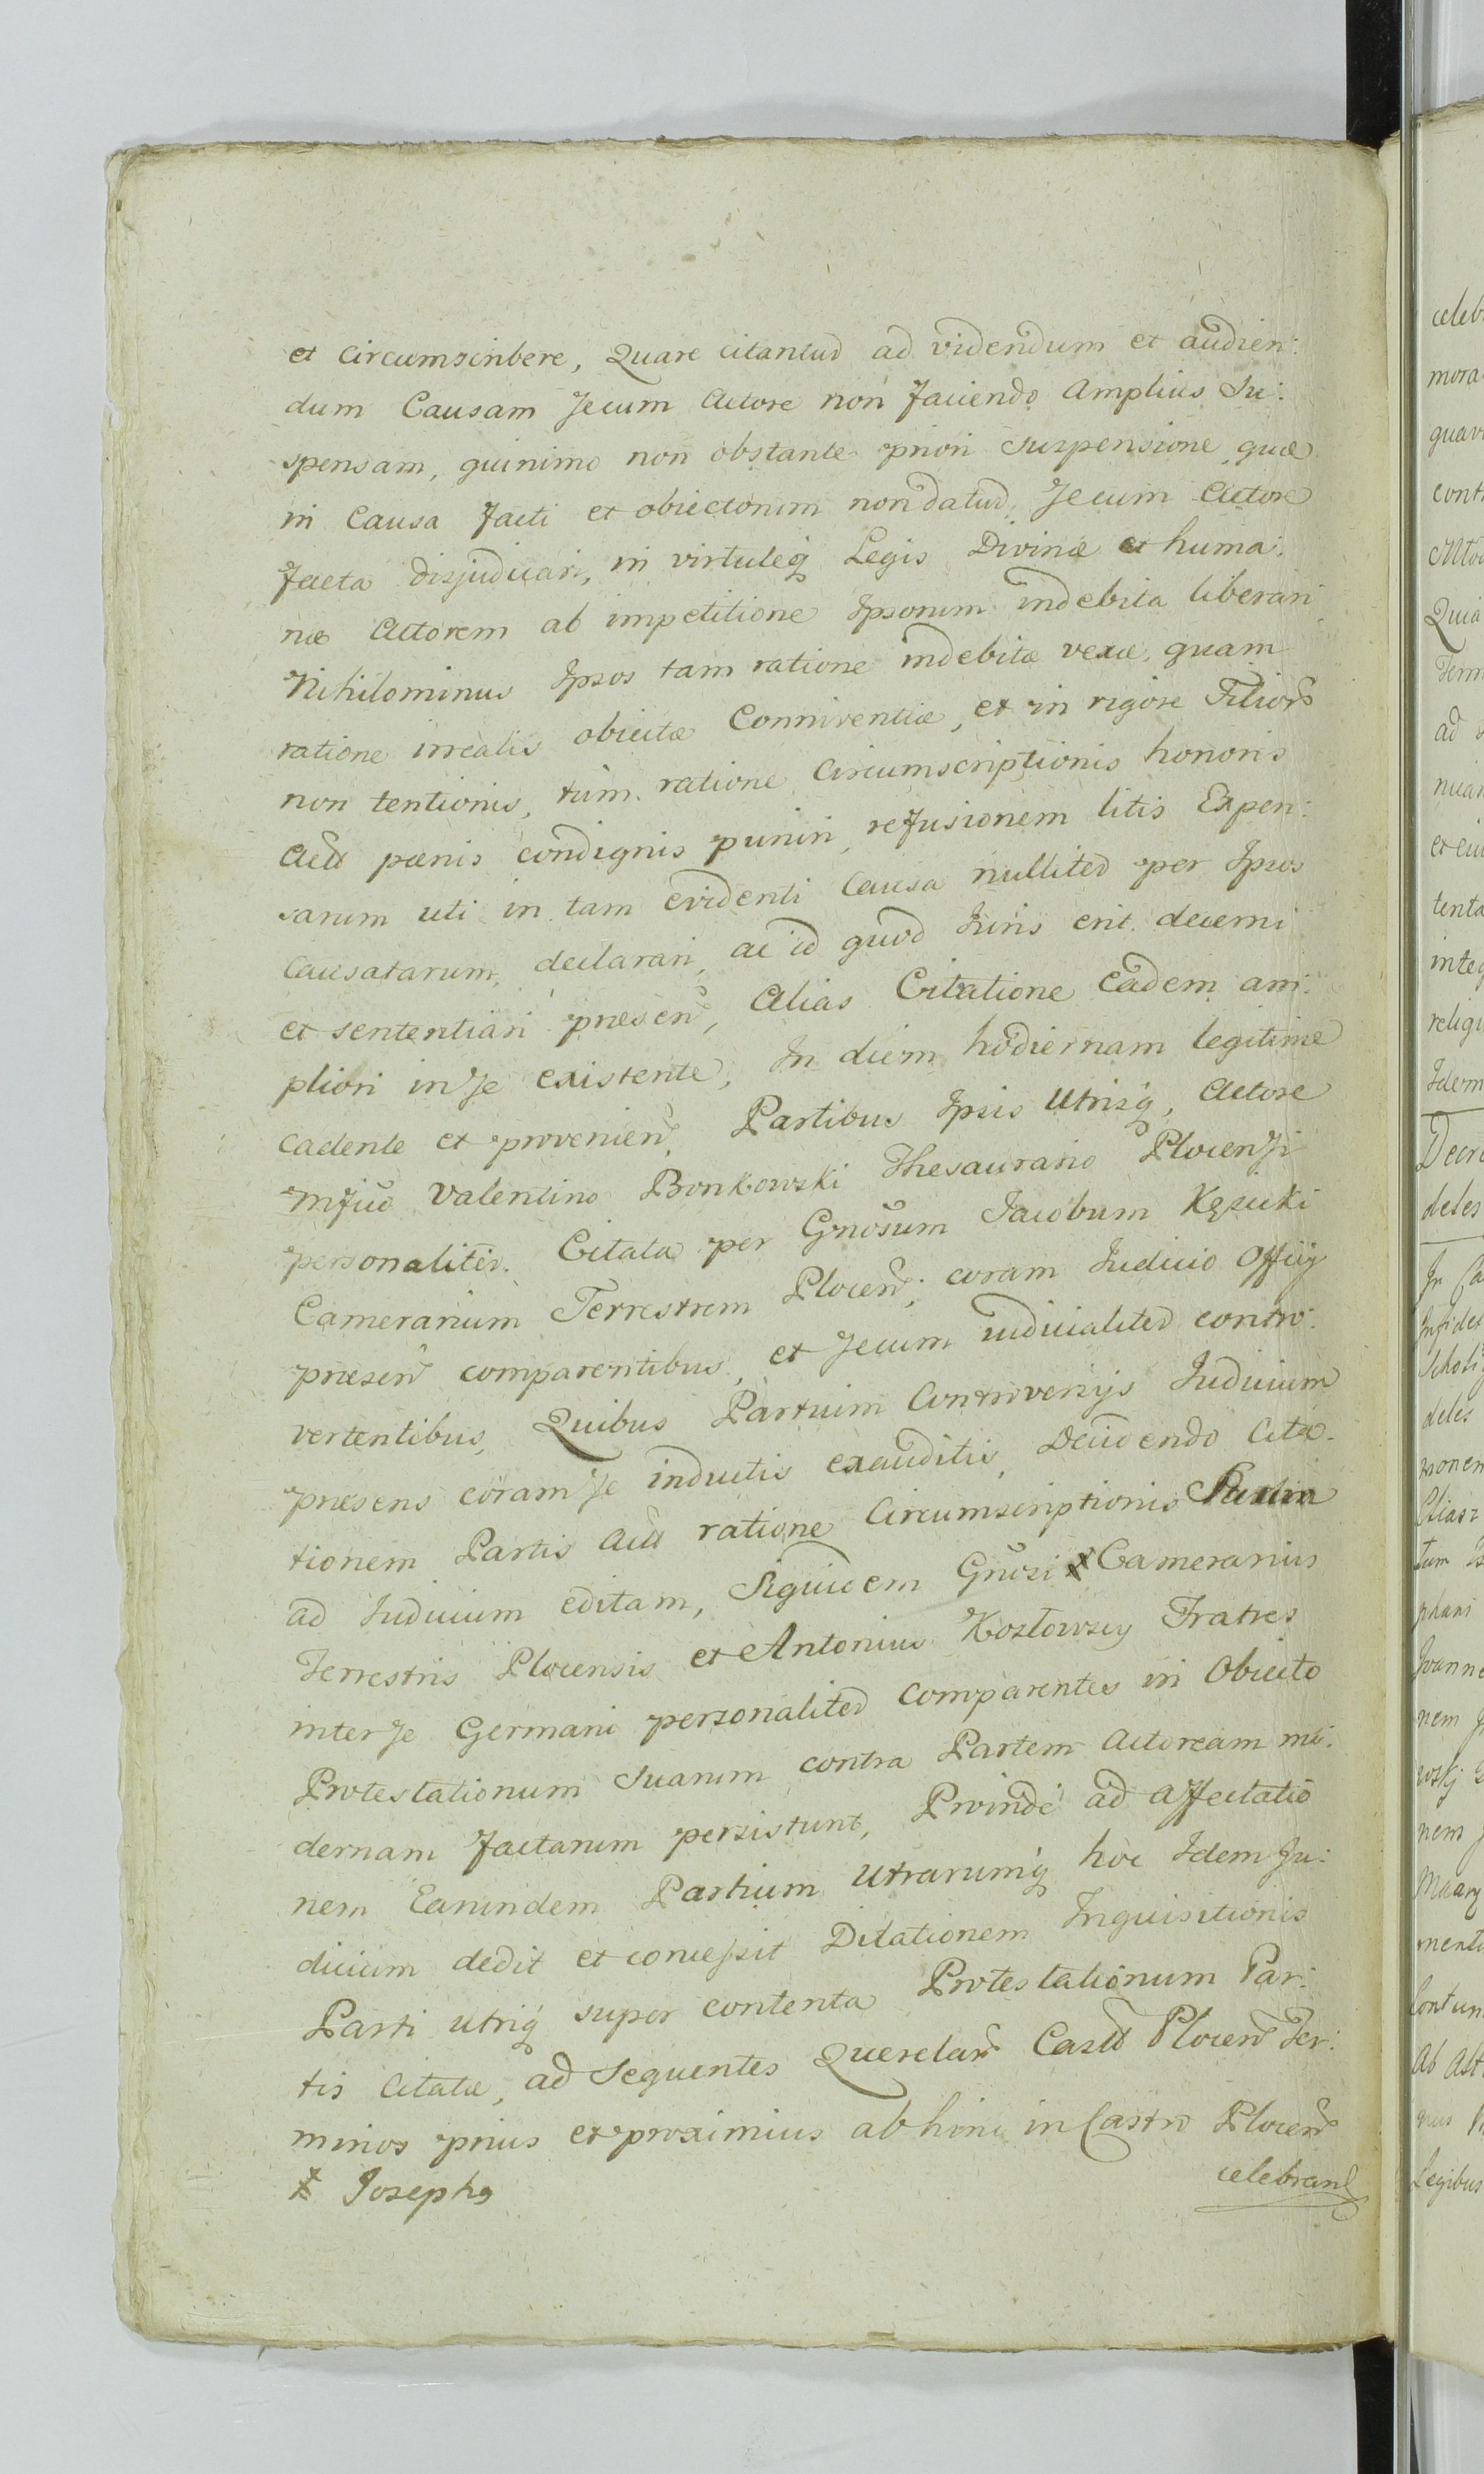 et circumscribere, Quare citantur ad videndum et audien:
dum Causam secum Actore non faciendo Amplius Su:
spensam, quinimo non obstante priori suspensione, quæ
in Causa facti et obiectorum non datur, secum Actore
facta disjudicari, in virtuteq Legis Divinæ et huma:
næ Actorem ab impetitione Ipsorum indebita liberari
Nihilominus Ipsos tam ratione indebitæ vexæ, quam
ratione irrealis obiectæ Conniventiæ, et in rigore Filior
non tentionis, tum ratione Circumscriptionis honoris
Act pœnis condignis puniri, refusionem litis Expen:
sarum uti in tam evidenti Causa nulliter per Ipsos
Causatarum, declarari, ac id quod Iuris erit decerni
et sententiari præsen, Alias Citatione Eadem am:
pliori in se existente, In diem hodiernam legitime
cadente et provenien, Partibus Ipsis Utrisq, Actore
Mfco Valentino Bonkowski Thesaurario Plocensi
personaliter. Citata per Gnosum Jacobum Kęsicki
Camerarium Terrestrem Plocen; coram Iudicio Officij
præsen comparentibus, et secum iudicialiter contro:
vertentibus, Quibus Partium Controversijs Iudicium
præsens coram se inductis exauditis, Decidendo Cita:
tionem Partis Act ratione Circumscriptionis
ad Iudicium editam, Siquidem Gnosi x Camerarius
Terrestris Plocensis et Antonius Kozłowscy Fratres
inter se Germani personaliter comparentes in Obiecto
Protestationum suarum contra Partem Actoream mo:
dernam factarum persistunt, Proinde ad Affectatio
nem Earundem Partium Utrarumq hoc Idem Ju:
dicium dedit et concessit Dilationem Inquisitionis
Parti utriq super contenta Protestationum Par:
tis Citatæ, ad sequentes Querelar Castr Plocen Ter:
minos prius et proximius ab hinc in Castro Plocen
x Josephq
celebrand
celeb
mora
quav
cont
Quia
ad
et eiu
tenta
integ
religi
Idem
Decre
deles
In Ca
Infidel
deles
nem
Legibus